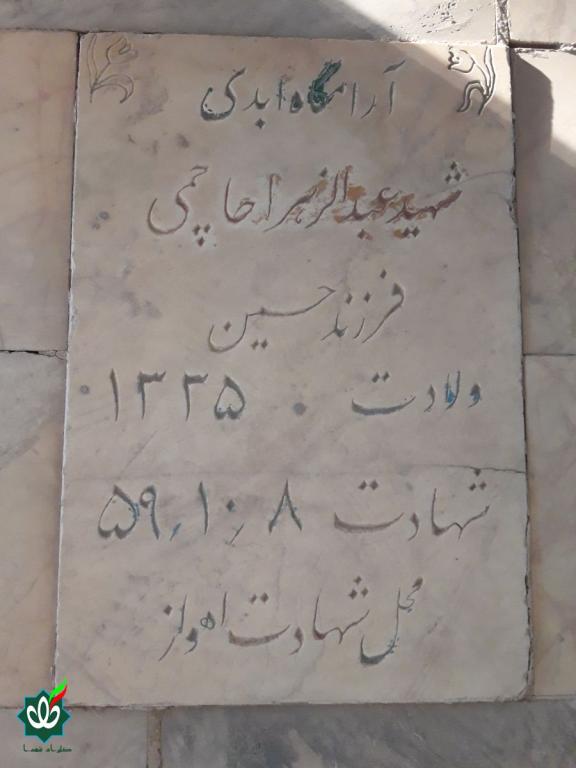 آرامگاه ابدی
شهید عبدالزهرا حاچمی
فرزند حسین
ولادت ۱۳۳۵
شهادت ۵۹٫۱۰٫۸
محل شهادت اهواز